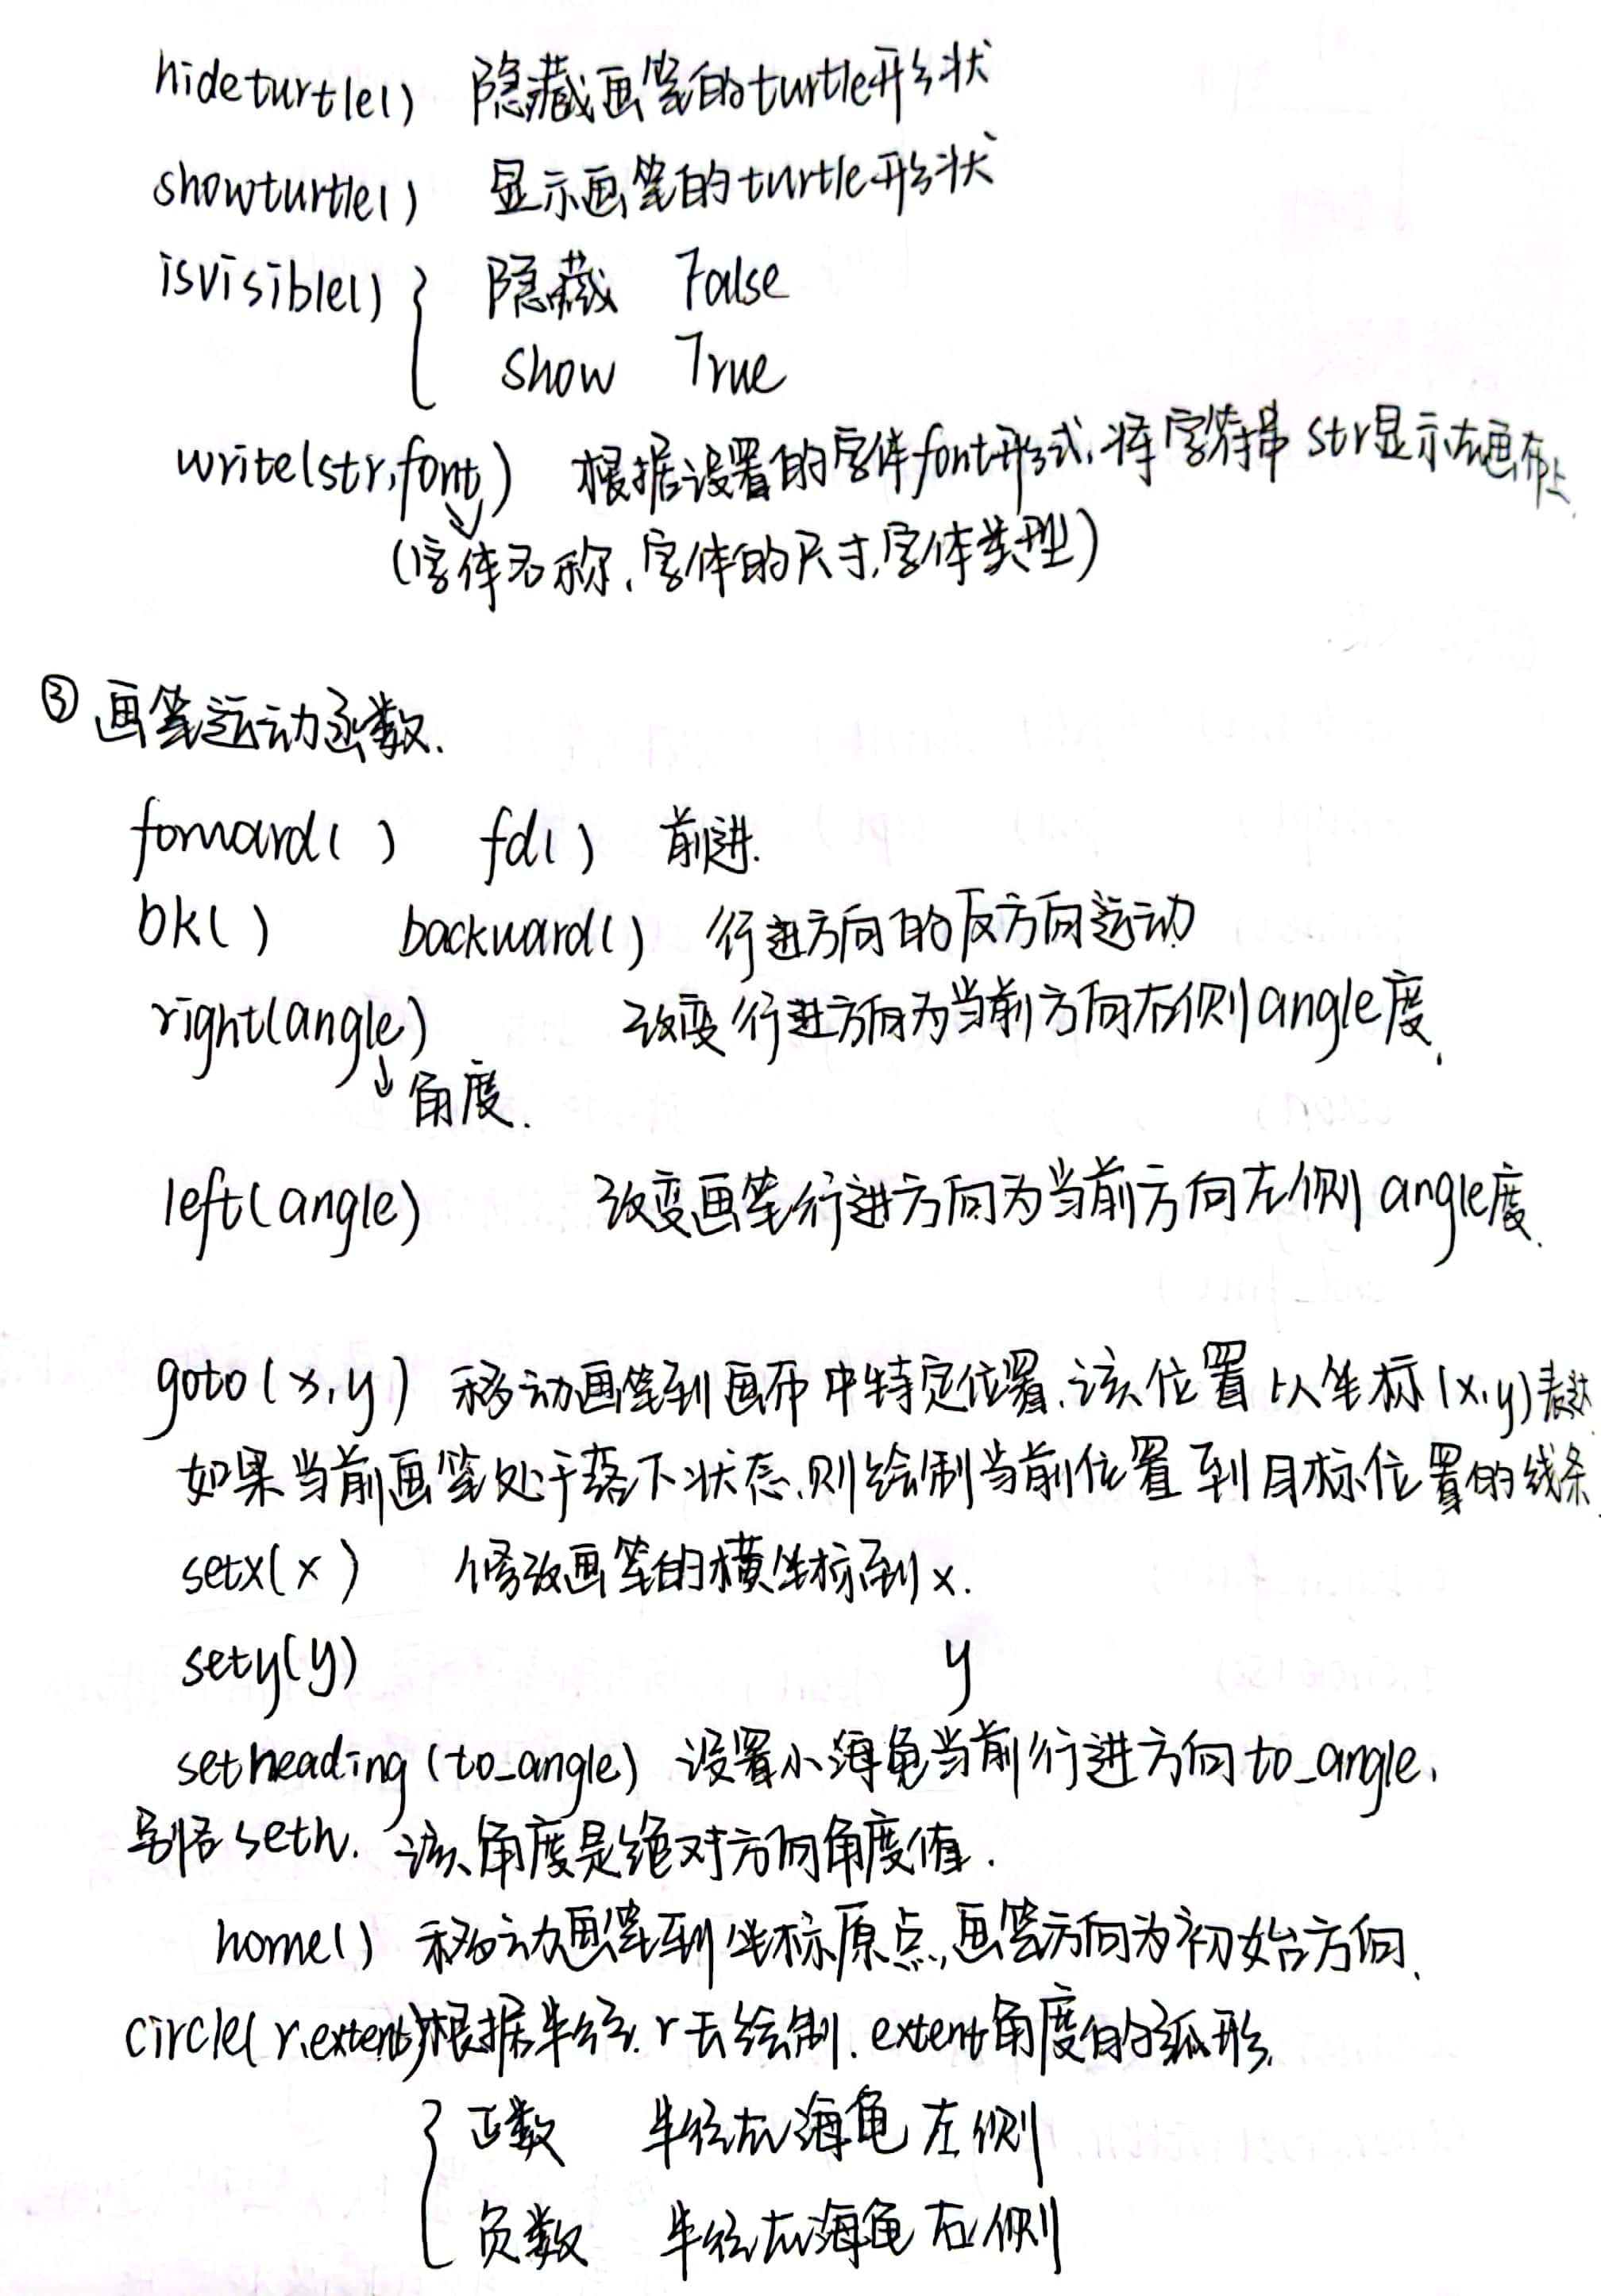 hideturtle() 隐藏画笔的turtle形状
showturtle() 显示画笔的turtle形状
isvisible() { 隐藏 False
show True
write(str,font) 根据设置的字体font形式,将字符串str显示在画布上.
(字体名称,字体的尺寸,字体类型)
③ 画笔运动函数.
forward( ) fd( ) 前进.
bk( ) backward() 行进方向的反方向运动
right(angle) 改变行进方向为当前方向右侧angle度.
↓角度.
left(angle) 改变画笔行进方向为当前方向左侧angle度.
goto(x,y) 移动画笔到画布中特定位置,该位置以坐标(x,y)表达.
如果当前画笔处于落下状态,则绘制当前位置到目标位置的线条.
setx(x) 修改画笔的横坐标到x.
sety(y) y
setheading(to_angle) 设置小海龟当前行进方向to_angle,
别名seth. 该角度是绝对方向角度值.
home() 移动画笔到坐标原点,画笔方向为初始方向.
circle(r,extent)根据半径r去绘制.extent角度的弧形.
{ 正数 半径在海龟左侧
负数 半径在海龟右侧